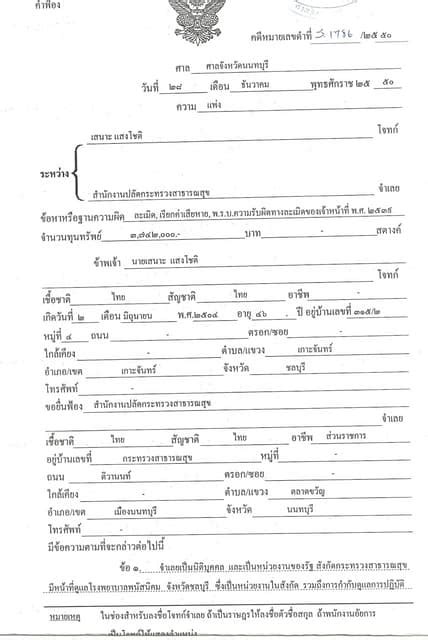 คำฟ้อง
คดีหมายเลขดำที่ /๒๕ ๕๐
ศาล ศาลจังหวัดนนทบุรี
วันที่ ๒๘ เดือน ธันวาคม พุทธศักราช ๒๕ ๕๐
ความ แพ่ง
เสนาะ แสงโชติ โจทก์
ระหว่าง
สำนักงานปลัดกระทรวงสาธารณสุข จำเลย
ข้อหาหรือฐานความผิด ละเมิด, เรียกค่าเสียหาย, พ.ร.บ.ความรับผิดทางละเมิดของเจ้าหน้าที่ พ.ศ. ๒๕๓๙
จำนวนทุนทรัพย์ ๓,๗๔๒,๐๐๐.- บาท - สตางค์
ข้าพเจ้า นายเสนาะ แสงโชติ
โจทก์
เชื้อชาติ ไทย สัญชาติ ไทย อาชีพ -
เกิดวันที่ ๒ เดือน มิถุนายน พ.ศ.๒๕๐๔ อายุ ๔๖ ปี อยู่บ้านเลขที่ ๓๑๕/๒
หมู่ที่ ๔ ถนน - ตรอก/ซอย -
ใกล้เคียง - ตำบล/แขวง เกาะจันทร์
อำเภอ/เขต เกาะจันทร์ จังหวัด ชลบุรี
โทรศัพท์ -
ขอยื่นฟ้อง สำนักงานปลัดกระทรวงสาธารณสุข
จำเลย
เชื้อชาติ ไทย สัญชาติ ไทย อาชีพ ส่วนราชการ
อยู่บ้านเลขที่ กระทรวงสาธารณสุข หมู่ที่ -
ถนน ติวานนท์ ตรอก/ซอย -
ใกล้เคียง - ตำบล/แขวง ตลาดขวัญ
อำเภอ/เขต เมืองนนทบุรี จังหวัด นนทบุรี
โทรศัพท์ -
มีข้อความตามที่จะกล่าวต่อไปนี้
ข้อ ๑. จำเลยเป็นนิติบุคคล และเป็นหน่วยงานของรัฐ สังกัดกระทรวงสาธารณสุข
มีหน้าที่ดูแลโรงพยาบาลพนัสนิคม จังหวัดชลบุรี ซึ่งเป็นหน่วยงานในสังกัด รวมถึงการกำกับดูแลการปฏิบัติ
หมายเหตุ ในช่องสำหรับลงชื่อโจทก์จำเลย ถ้าเป็นราษฎรให้ลงชื่อตัวชื่อสกุล ถ้าพนักงานอัยการ